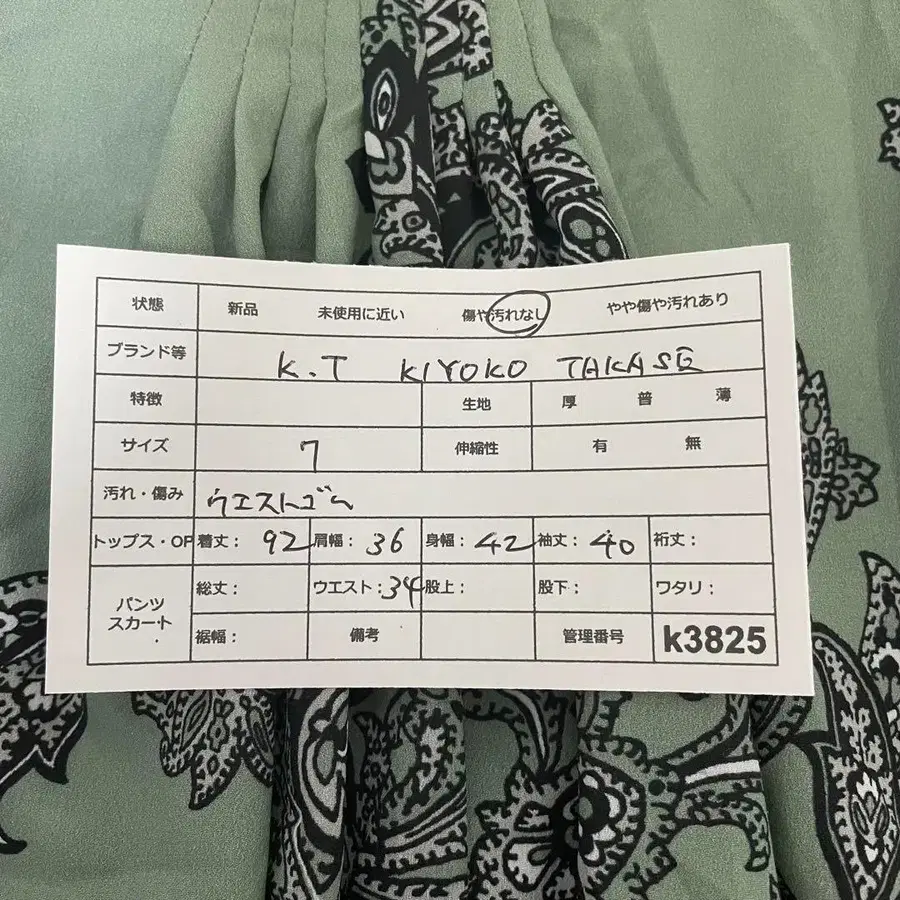 状態 新品 未使用に近い 傷や汚れなし やや傷や汚れあり
ブランド等 K.T KIYOKO TAKASE
特徴 生地 厚 普 薄
サイズ 7 伸縮性 有 無
汚れ・傷み ウエストゴム
トップス・OP 着丈: 92 肩幅: 36 身幅: 42 袖丈: 40 裄丈:
パンツ スカート 総丈: ウエスト:34 股上: 股下: ワタリ:
裾幅: 備考 管理番号 k3825